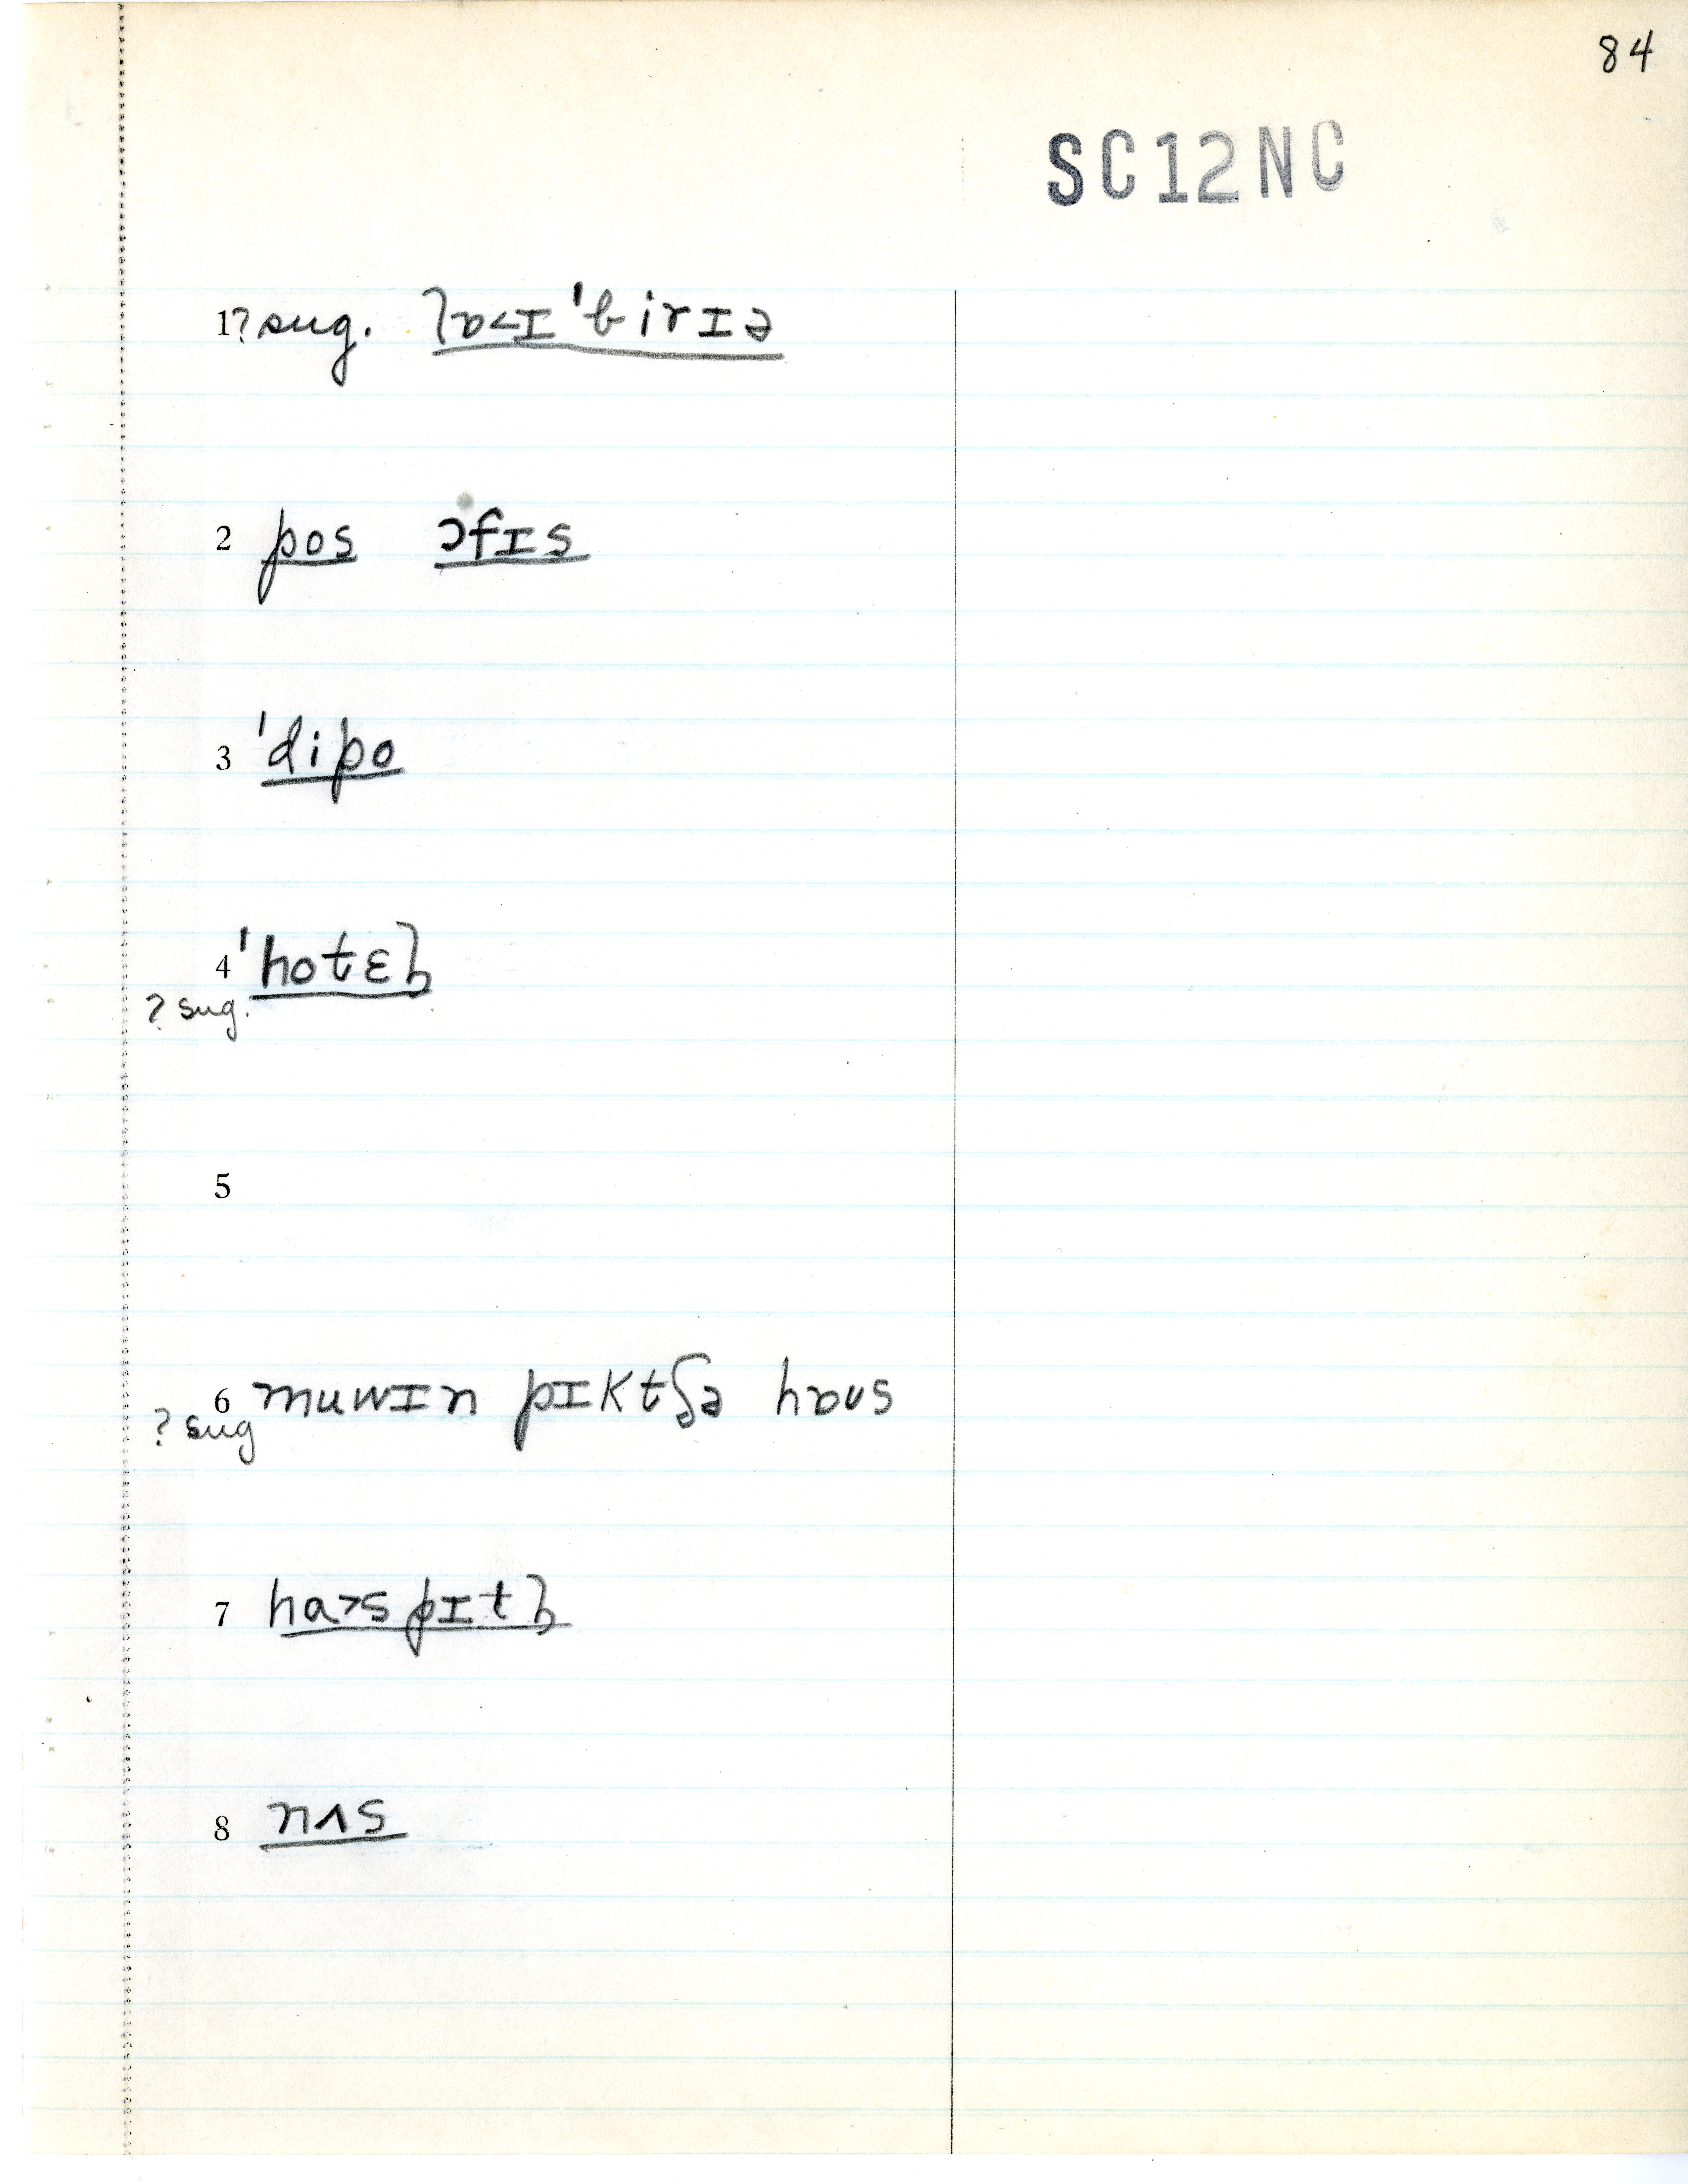 84
SC12NC
1 ? sug. lɒ˂ɪˈbirɪə
2 pos ɔfɪs
3 ˈdipo
4 ˈhotɛl̩
? sug.
5
6 muwɪn pɪktʃə hɒus
? sug
7 ha˃spɪtl̩
8 nʌs